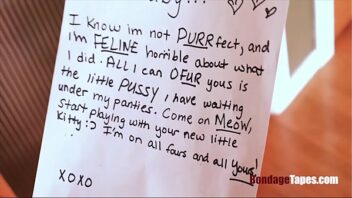 I know im not PURRfect, and
im FELINE horrible about what
I did. ALL I can OFUR yous is
the little PUSSY I have waiting
under my panties. Come on MEOW,
start playing with your new little
Kitty :) I'm on all fours and all yours!
XOXO
BondageTapes.com